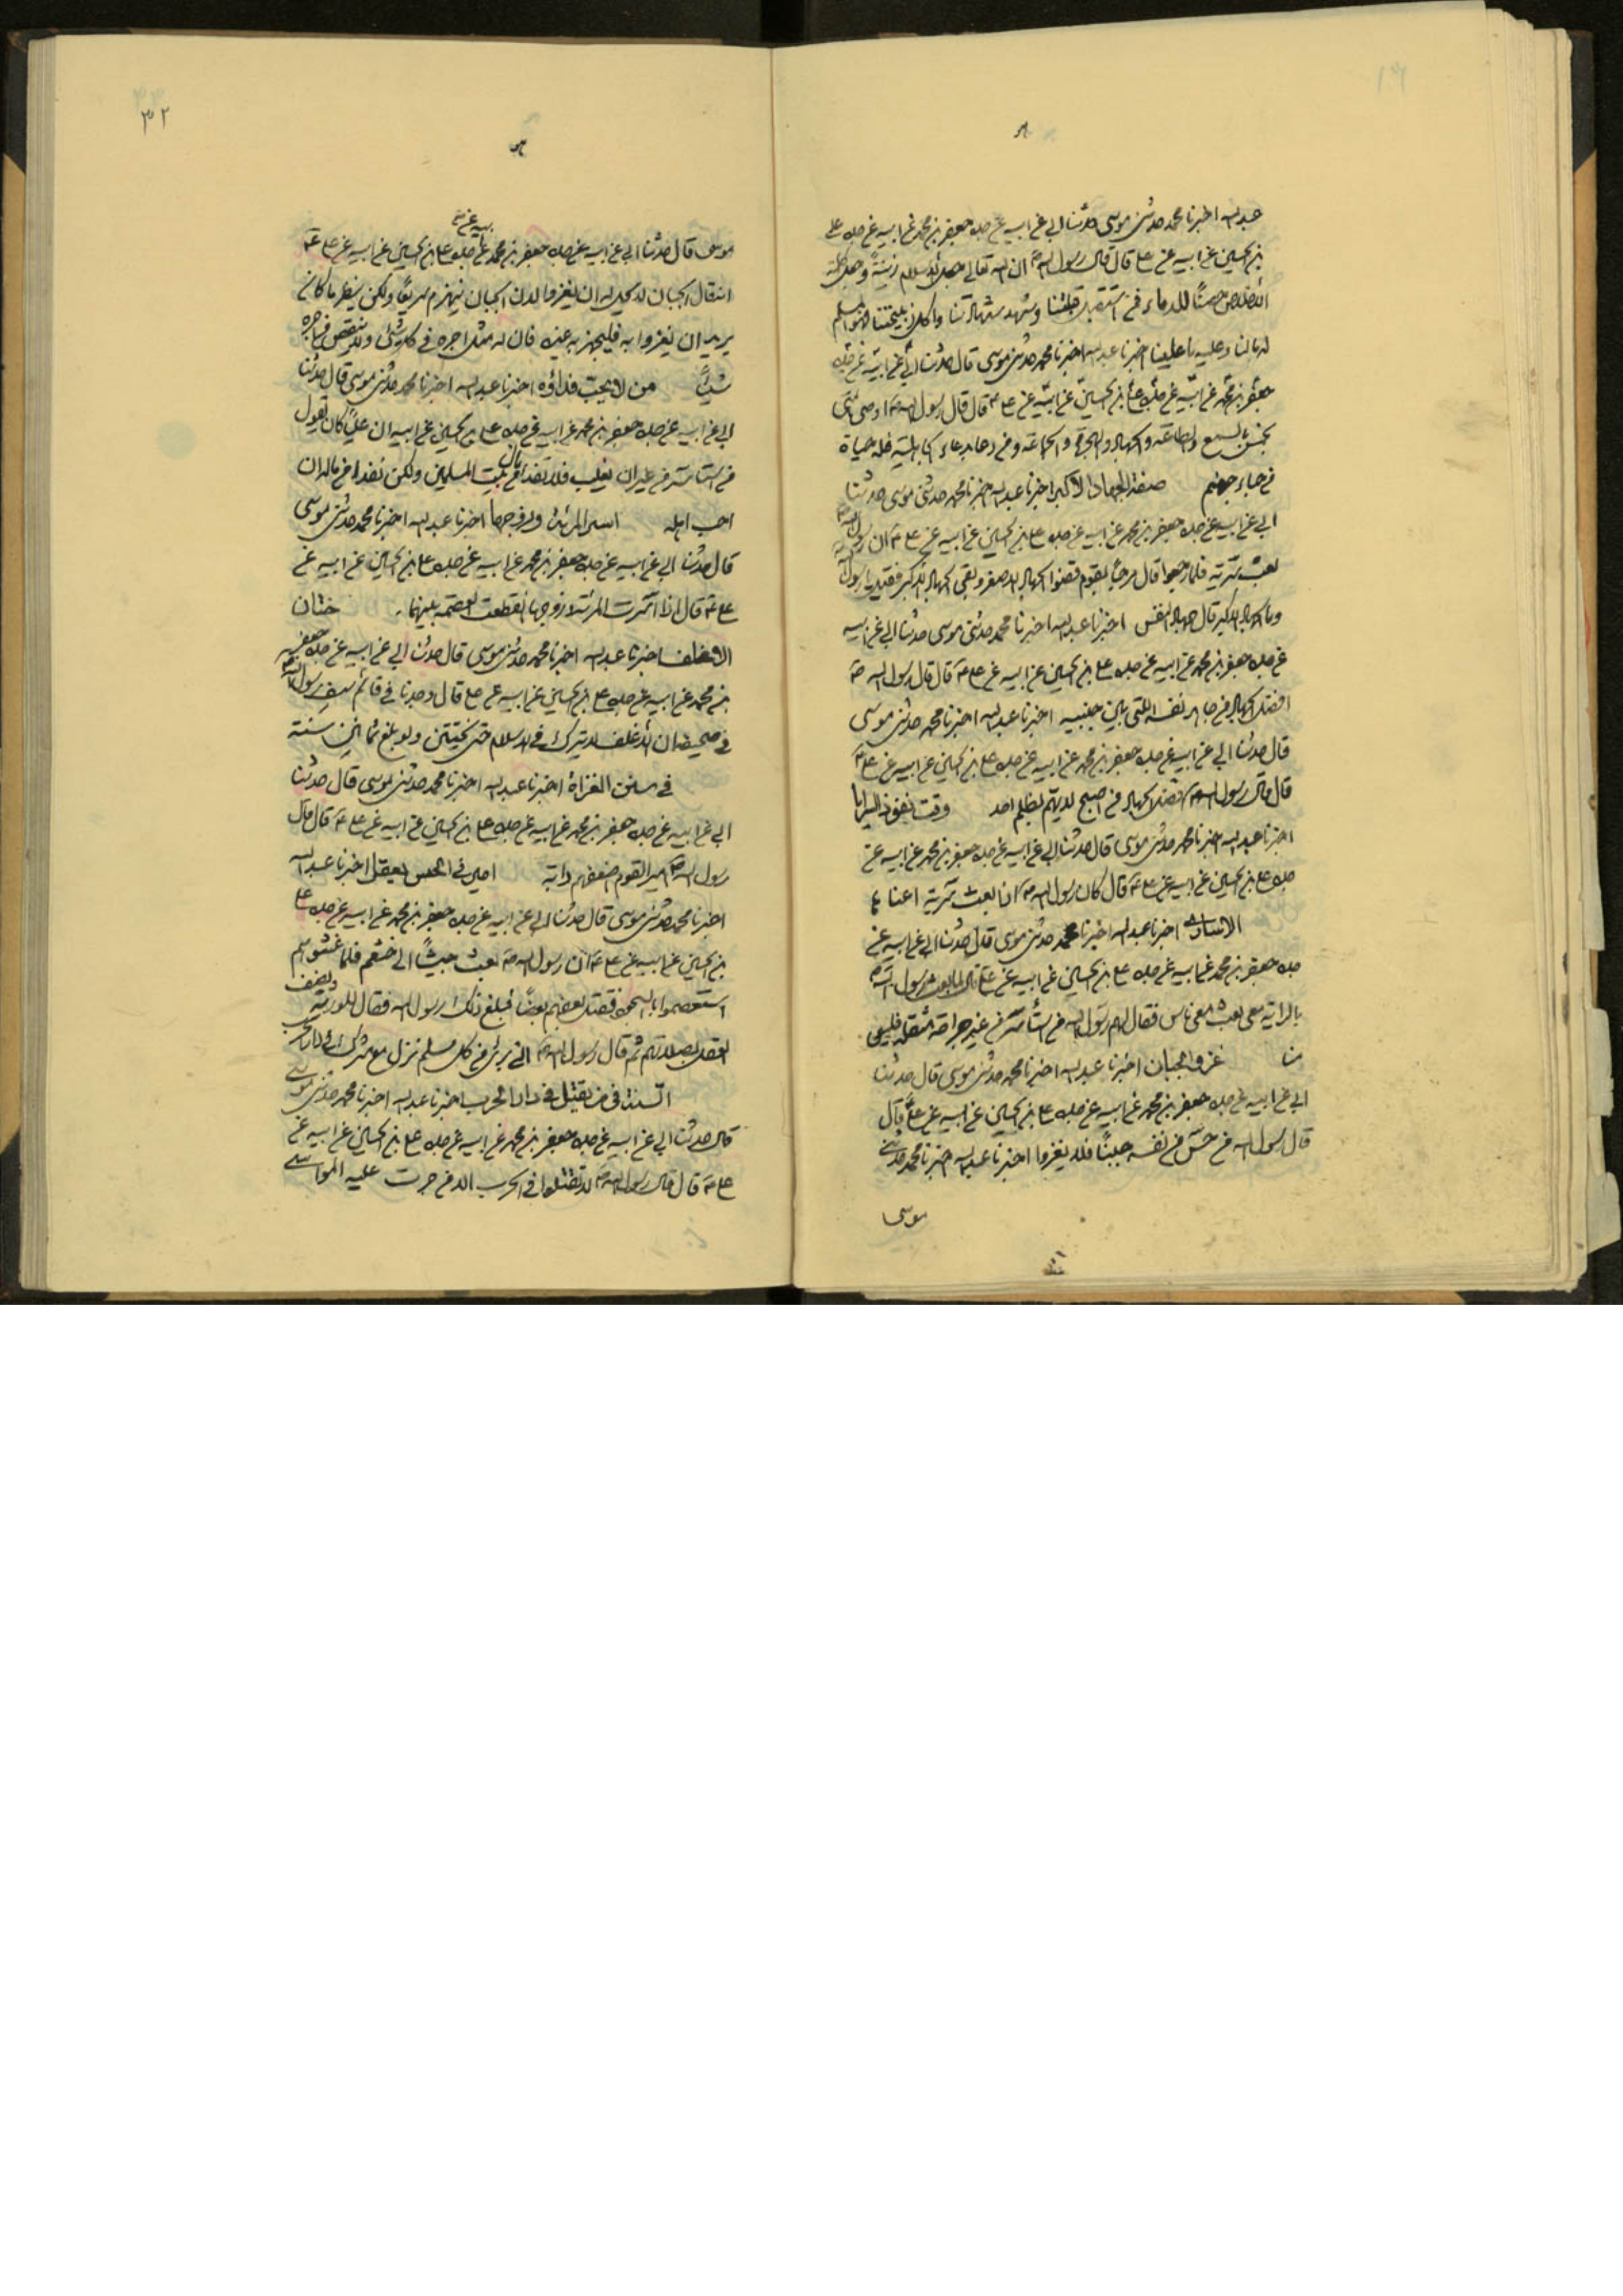 عبد الله اخبرنا محمد حدثنى موسى حدثنا ابى عن ابيه عن جده جعفر بن محمد عن ابيه عن جده على
بن الحسين عن ابيه عن على قال قال رسول الله ص ان الله تعالى جعل الاسلام زينة وجعل كلمة
الاخلاص حصنا للدماء فمن استقبل قبلتنا وشهد شهادتنا واكل ذبيحتنا فهو المسلم
له مالنا وعليه ما علينا اخبرنا عبد الله اخبرنا محمد حدثنى موسى قال حدثنا ابى عن ابيه عن جده
جعفر بن محمد عن ابيه عن جده على بن الحسين عن ابيه عن على ع قال قال رسول الله ص اوصى امتى
بخمس بالسمع والطاعة والجهاد والهجرة والجماعة ومن دعا بدعاء الجاهلية فله
من جهنم صفة الجهاد الاكبر اخبرنا عبد الله اخبرنا محمد حدثنى موسى حدثنا
ابى عن ابيه عن جده جعفر بن محمد عن ابيه عن جده على بن الحسين عن ابيه عن على ع ان رسول الله ص
بعث سرية فلما رجعوا قال مرحبا بقوم قضوا الجهاد الاصغر وبقى الجهاد الاكبر فقيل يا رسول الله
وما الجهاد الاكبر قال جهاد النفس اخبرنا عبد الله اخبرنا محمد حدثنى موسى حدثنا ابى عن ابيه
عن جده جعفر بن محمد عن ابيه عن جده على بن الحسين عن ابيه عن على ع قال قال رسول الله ص
افضل الجهاد من جاهد نفسه التى بين جنبيه اخبرنا عبد الله اخبرنا محمد حدثنى موسى
قال حدثنا ابى عن ابيه عن جده جعفر بن محمد عن ابيه عن جده على بن الحسين عن ابيه عن على ع
قال قال رسول الله ص افضل الجهاد من اصبح لا يهم بظلم احد وقت نفوذ السرايا
اخبرنا عبد الله اخبرنا محمد حدثنى موسى قال حدثنا ابى عن ابيه عن جده جعفر بن محمد عن ابيه عن
جده على بن الحسين عن ابيه عن على ع قال كان رسول الله ص اذا بعث سرية
اخبرنا عبد الله اخبرنا محمد حدثنى موسى قال حدثنا ابى عن ابيه عن
جده جعفر بن محمد عن ابيه عن جده على بن الحسين عن ابيه عن على ع قال لما بعث رسول الله ص
بالراية معى بعث معى ناس فقال لهم رسول الله من استأسر من غير جراحة مثقلة فليس
منا غزو الجبان اخبرنا عبد الله اخبرنا محمد حدثنى موسى قال حدثنا
ابى عن ابيه عن جده جعفر بن محمد عن ابيه عن جده على بن الحسين عن ابيه عن على ع قال
قال رسول الله من حس من نفسه جبنا فلا يغزوا اخبرنا عبد الله اخبرنا محمد حدثنى
موسى
٣٢
موسى قال حدثنا ابى عن ابيه عن جده جعفر بن محمد عن ابيه عن جده على بن الحسين عن ابيه عن على ع
انه قال الجبان لا يحل له ان يغزو الان الجبان ينهزم سريعا ولكن ينظر ما كان
يريد ان يغزوا به فليجهز به غيره فان له مثل اجره فى كل شئ ولا ينقص من اجره
شيئا من لا يجب فداؤه اخبرنا عبد الله اخبرنا محمد حدثنى موسى قال حدثنا
ابى عن ابيه عن جده جعفر بن محمد عن ابيه عن جده على بن الحسين عن ابيه ان عليا كان يقول
من استأسر من غير ان يغلب فلا يفدا من بيت مال المسلمين ولكن يفدا من ماله ان
احب اهله اسر المرئة وزوجها اخبرنا عبد الله اخبرنا محمد حدثنى موسى
قال حدثنا ابى عن ابيه عن جده جعفر بن محمد عن ابيه عن جده على بن الحسين عن ابيه عن
على ع قال اذا اسرت المرئة وزوجها انقطعت العصمة بينهما ختان
الاغلف اخبرنا عبد الله اخبرنا محمد حدثنى موسى قال حدثنا ابى عن ابيه عن جده جعفر
بن محمد عن ابيه عن جده على بن الحسين عن ابيه عن على قال وجدنا فى قائم سيف رسول الله ص
فى صحيفة ان الاغلف لا يترك فى الاسلام حتى يختتن ولو بلغ ثمانين سنة
فى سنن الغزاة اخبرنا عبد الله اخبرنا محمد حدثنى موسى قال حدثنا
ابى عن ابيه عن جده جعفر بن محمد عن ابيه عن جده على بن الحسين عن ابيه عن على ع قال قال
رسول الله ص امير القوم اضعفهم دابة اخبرنا عبد الله
اخبرنا محمد حدثنى موسى قال حدثنا ابى عن ابيه عن جده جعفر بن محمد عن ابيه عن جده على
بن الحسين عن ابيه عن على ع ان رسول الله ص بعث جيشا الى خثعم فلما غشوهم
استعصموا بالسجود فقتل بعضهم بعضا فبلغ ذلك رسول الله فقال للورثة نصف
العقل بصلاتهم ثم قال رسول الله ص انى برئ من كل مسلم نزل مع مشرك فى دار الحرب
السنة فى من يقتل فى دار الحرب اخبرنا عبد الله اخبرنا محمد حدثنى موسى
قال حدثنا ابى عن ابيه عن جده جعفر بن محمد عن ابيه عن جده على بن الحسين عن ابيه عن
على ع قال قال رسول الله ص لا تقتلوا فى الحرب الا من جرت عليه المواسى